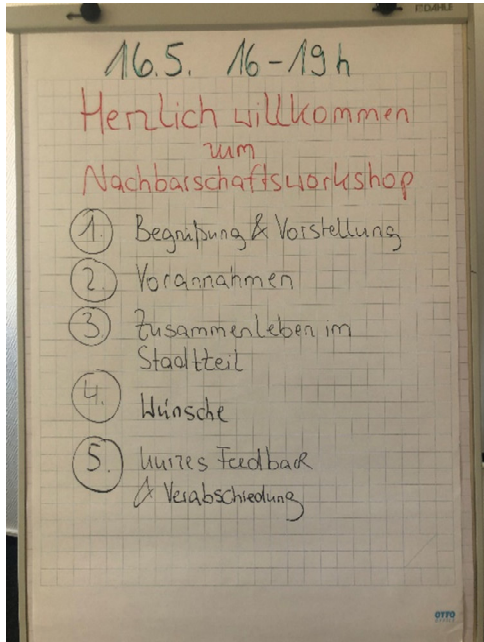 DAHLE
16.5. 16-19h
Herzlich willkommen
zum
Nachbarschaftsworkshop
1. Begrüßung & Vorstellung
2. Vorannahmen
3 Zusammenleben im
Stadtteil
4. Wünsche
5. kurzes Feedback
& Verabschiedung
OTTO